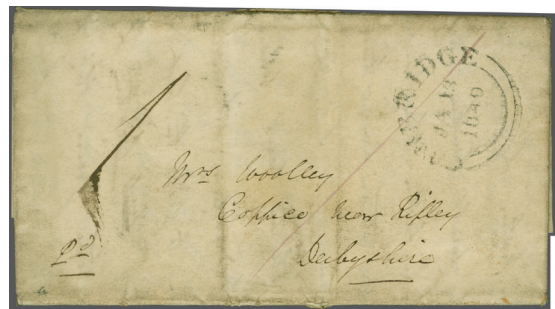 CAMBRIDGE
JA
1840
1
Mrs Woolley
Coppice near Ripley
Derbyshire
Pd
a